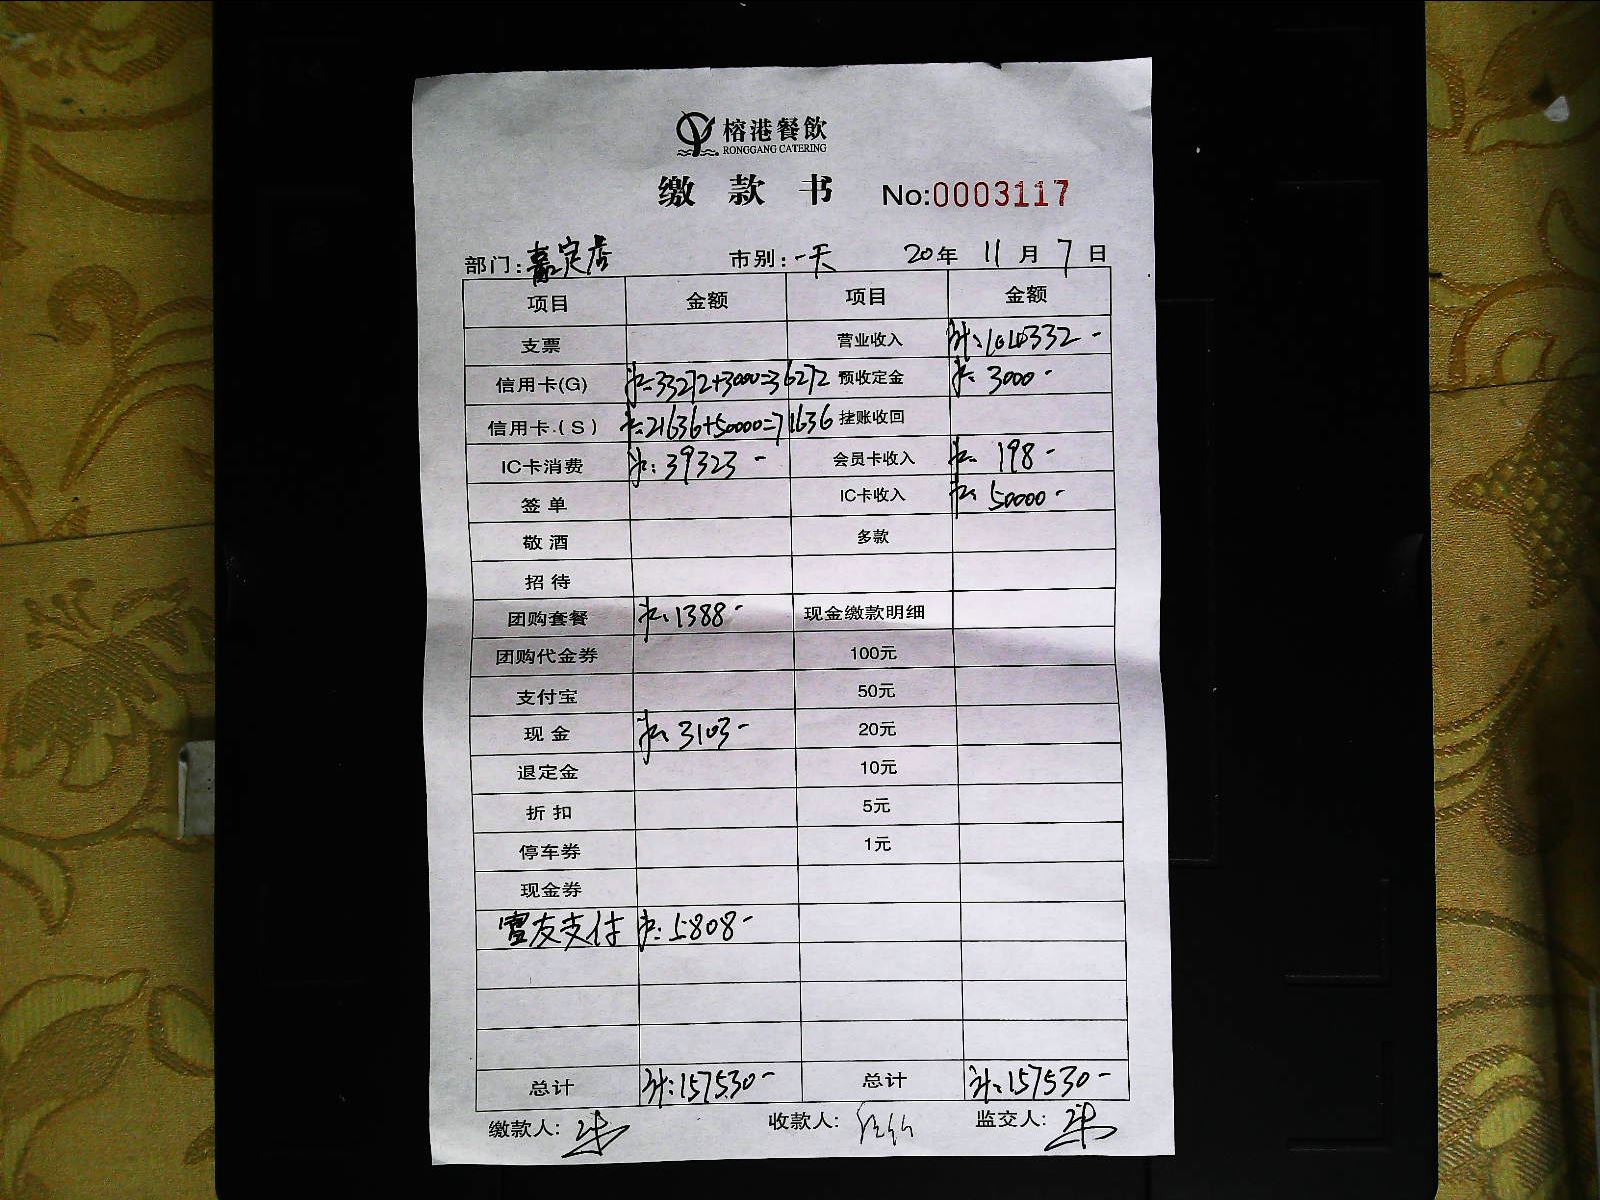 榕港餐飲
RONGGANG CATERING
缴款书 No:0003117
部门:嘉定店 市别:一天 20年 11月 7日
项目 金额 项目 金额
支票 营业收入 计:104332-
信用卡(G) 计:33272+3000=36272 预收定金 计:3000-
信用卡.(S) 计:21636+50000=71636 挂账收回
IC卡消费 计:39323- 会员卡收入 计:198-
签单 IC卡收入 计:50000-
敬酒 多款
招待
团购套餐 计:1388- 现金缴款明细
团购代金券 100元
支付宝 50元
现金 计:3103- 20元
退定金 10元
折扣 5元
停车券 1元
现金券
富友支付 计:5808-
总计 计:157530- 总计 计:157530-
缴款人: 收款人: 监交人: